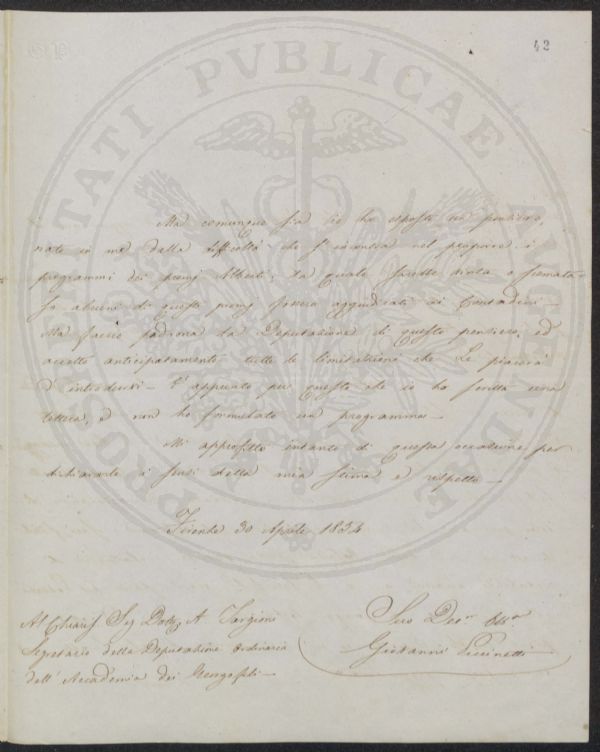 42
Ma comunque sia io ho esposto un pensiero,
nato in me dalla difficoltà che s'incontra nel proporre i
programmi dei premj Alberti, la quale sarebbe tolta o scemata
se alcuni di questi premj fossero aggiudicati ai Contadini.
Ma faccio padrona la Deputazione di questo pensiero, ed
accetto anticipatamente tutte le limitazioni che Le piacerà
d'introdurvi appunto per questo che io ho scritto una
lettera, e non ho formulato un programma.
Mi approfitto intanto di questa occasione per
dichiararle i sensi della mia stima e rispetto.
Firenze 30 Aprile 1834
Al Chiaris Sig Dott. A Targioni
Segretario della Deputazione Ordinaria
dell'Accademia dei Georgofili
Suo Dev. Obb.
Giovanni
PRO
PVBLICAE
AVGENDAE